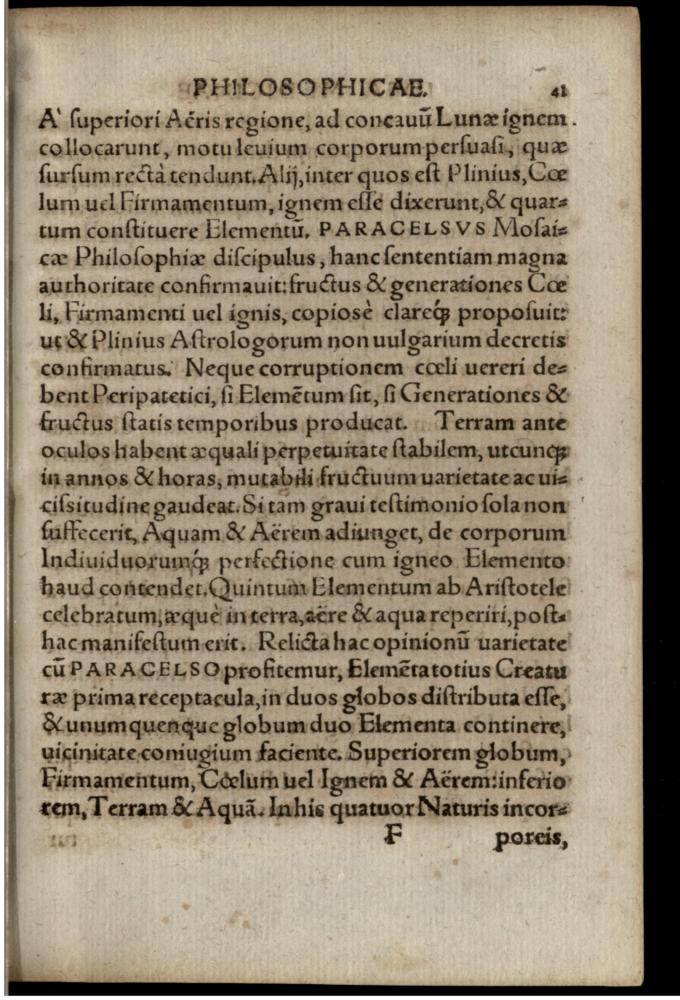 PHILOSOPHICAE. 41
A' ſuperiori Aëris regione, ad concauũ Lunæ ignem.
collocarunt, motu leuium corporum perſuaſi, quæ
ſurſum rectà tendunt. Alij, inter quos eſt Plinius, Cœ
lum uel Firmamentum, ignem eſſe dixerunt, & quar⸗
tum conſtituere Elementũ. PARACELSVS Moſai⸗
cæ Philoſophiæ diſcipulus, hanc ſententiam magna
authoritate confirmauit: fructus & generationes Cœ
li, Firmamenti uel ignis, copioſè clareq́ꝫ propoſuit:
ut & Plinius Aſtrologorum non uulgarium decretis
confirmatus. Neque corruptionem cœli uereri de⸗
bent Peripatetici, ſi Elemẽtum ſit, ſi Generationes &
fructus ſtatis temporibus producat. Terram ante
oculos habent æquali perpetuitate ſtabilem, utcunqꝫ
in annos & horas, mutabili fructuum uarietate ac ui⸗
ciſsitudine gaudeat. Si tam graui teſtimonio ſola non
ſuffecerit, Aquam & Aërem adiunget, de corporum
Indiuiduorumq́ꝫ perfectione cum igneo Elemento
haud contendet. Quintum Elementum ab Ariſtotele
celebratum, æquè in terra, aëre & aqua reperiri, poſt⸗
hac manifeſtum erit. Relicta hac opinionũ uarietate
cũ PARACELSO profitemur, Elemẽta totius Creatu
ræ prima receptacula, in duos globos diſtributa eſſe,
& unumquenque globum duo Elementa continere,
uicinitate coniugium faciente. Superiorem globum,
Firmamentum, Cœlum uel Ignem & Aërem: inferio
rem, Terram & Aquã. In his quatuor Naturis incor⸗
F poreis,